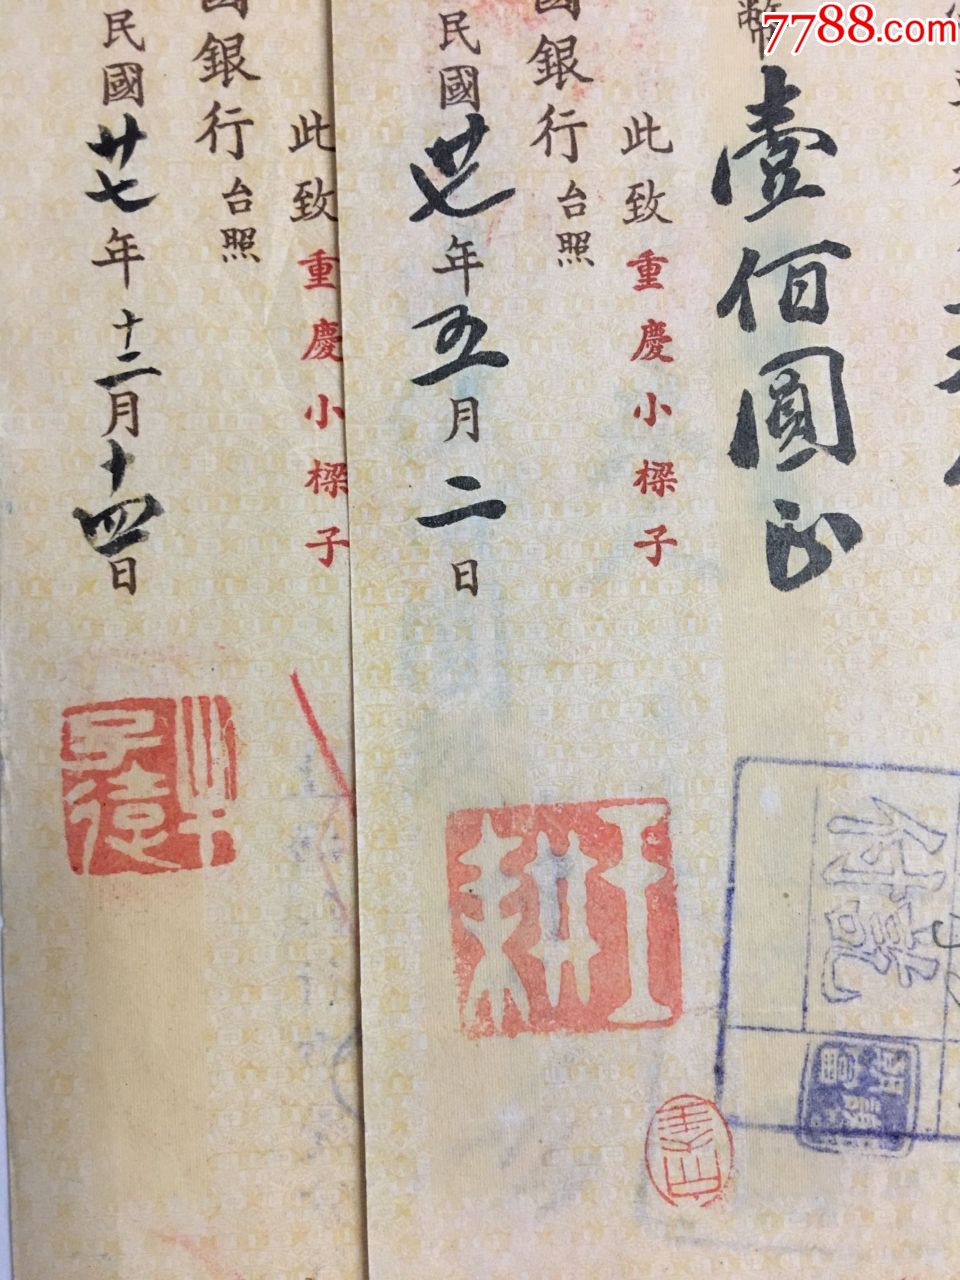 7788.com
幣壹佰圓正
此致重慶小樑子
國銀行台照
民國卅七年五月二日
付訖
王耕
此致重慶小樑子
國銀行台照
民國廿七年十二月十四日
子遠